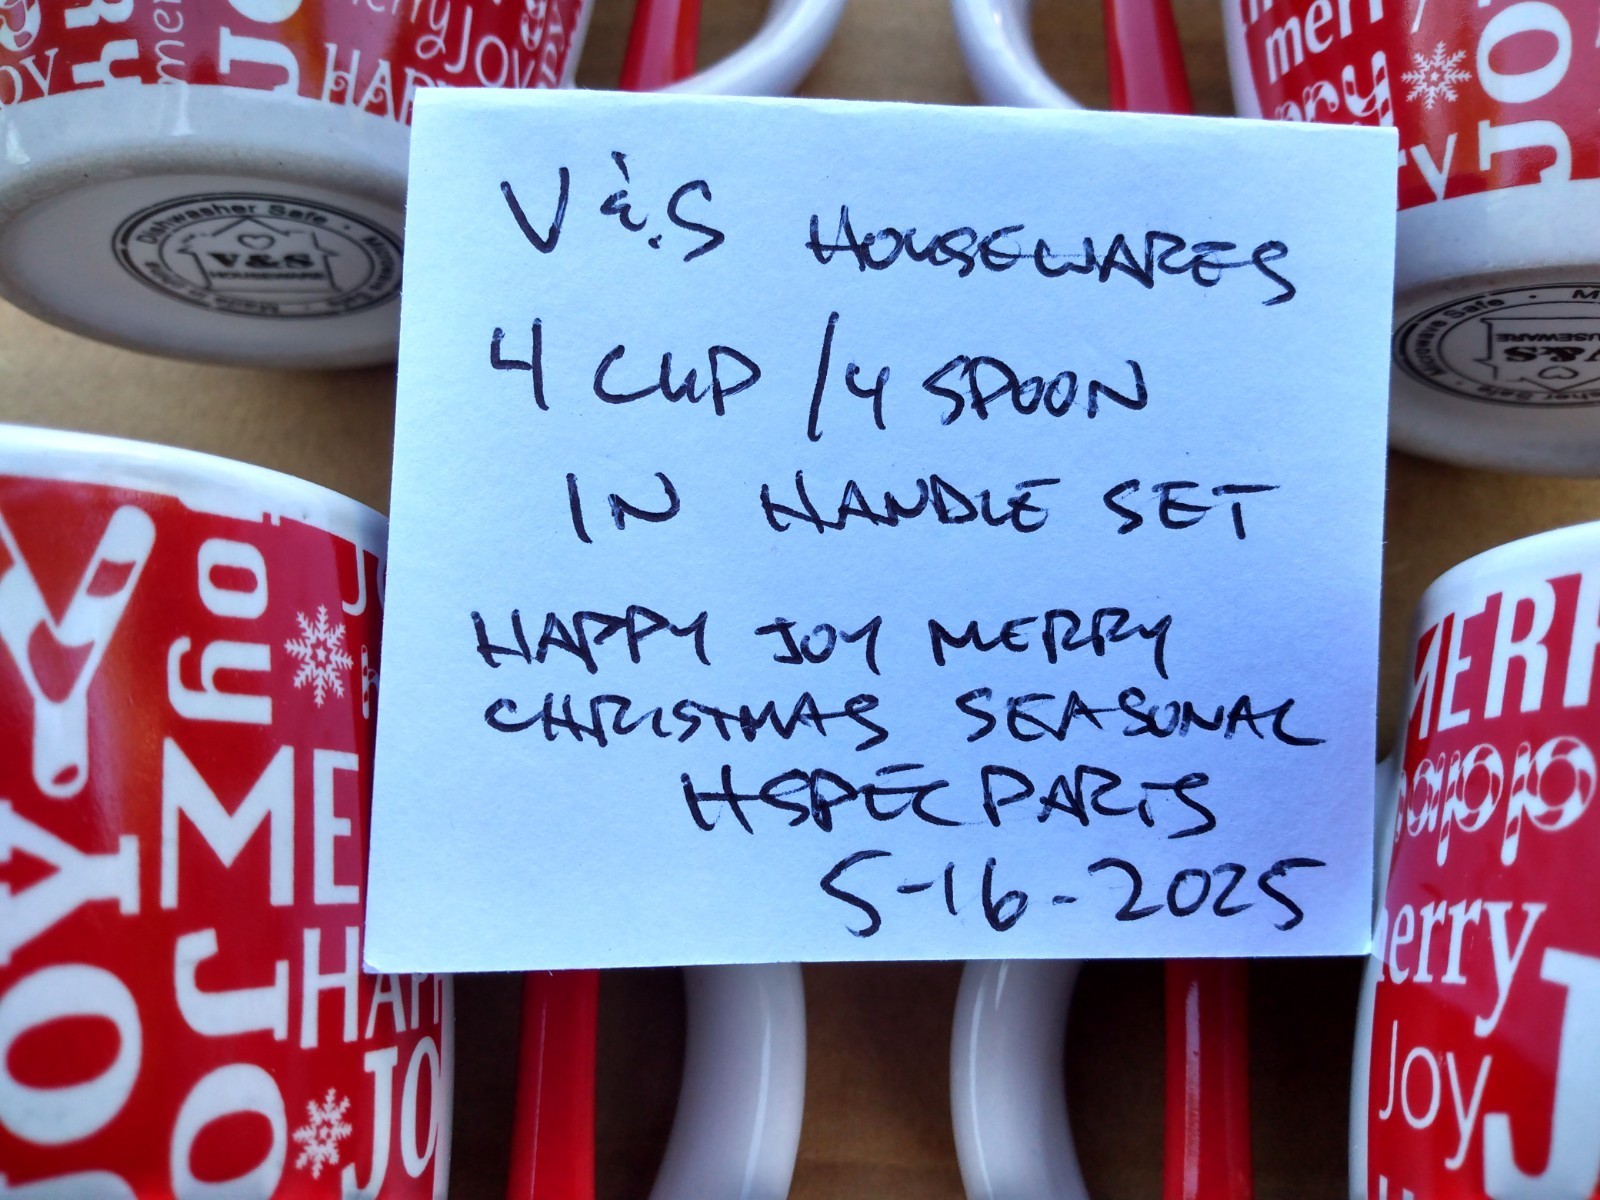 V & S HOUSEWARES
4 CUP / 4 SPOON
IN HANDLE SET
HAPPY JOY MERRY
CHRISTMAS SEASONAL
HSPEC PARTS
5-16-2025
Dishwasher Safe
V&S
HOUSEWARE
merry
JOY
HAPPY
joy
ME
JO
HAP
JO
JOY
merry
JO
MERR
happ
merry
Joy
J
Safe
V&S